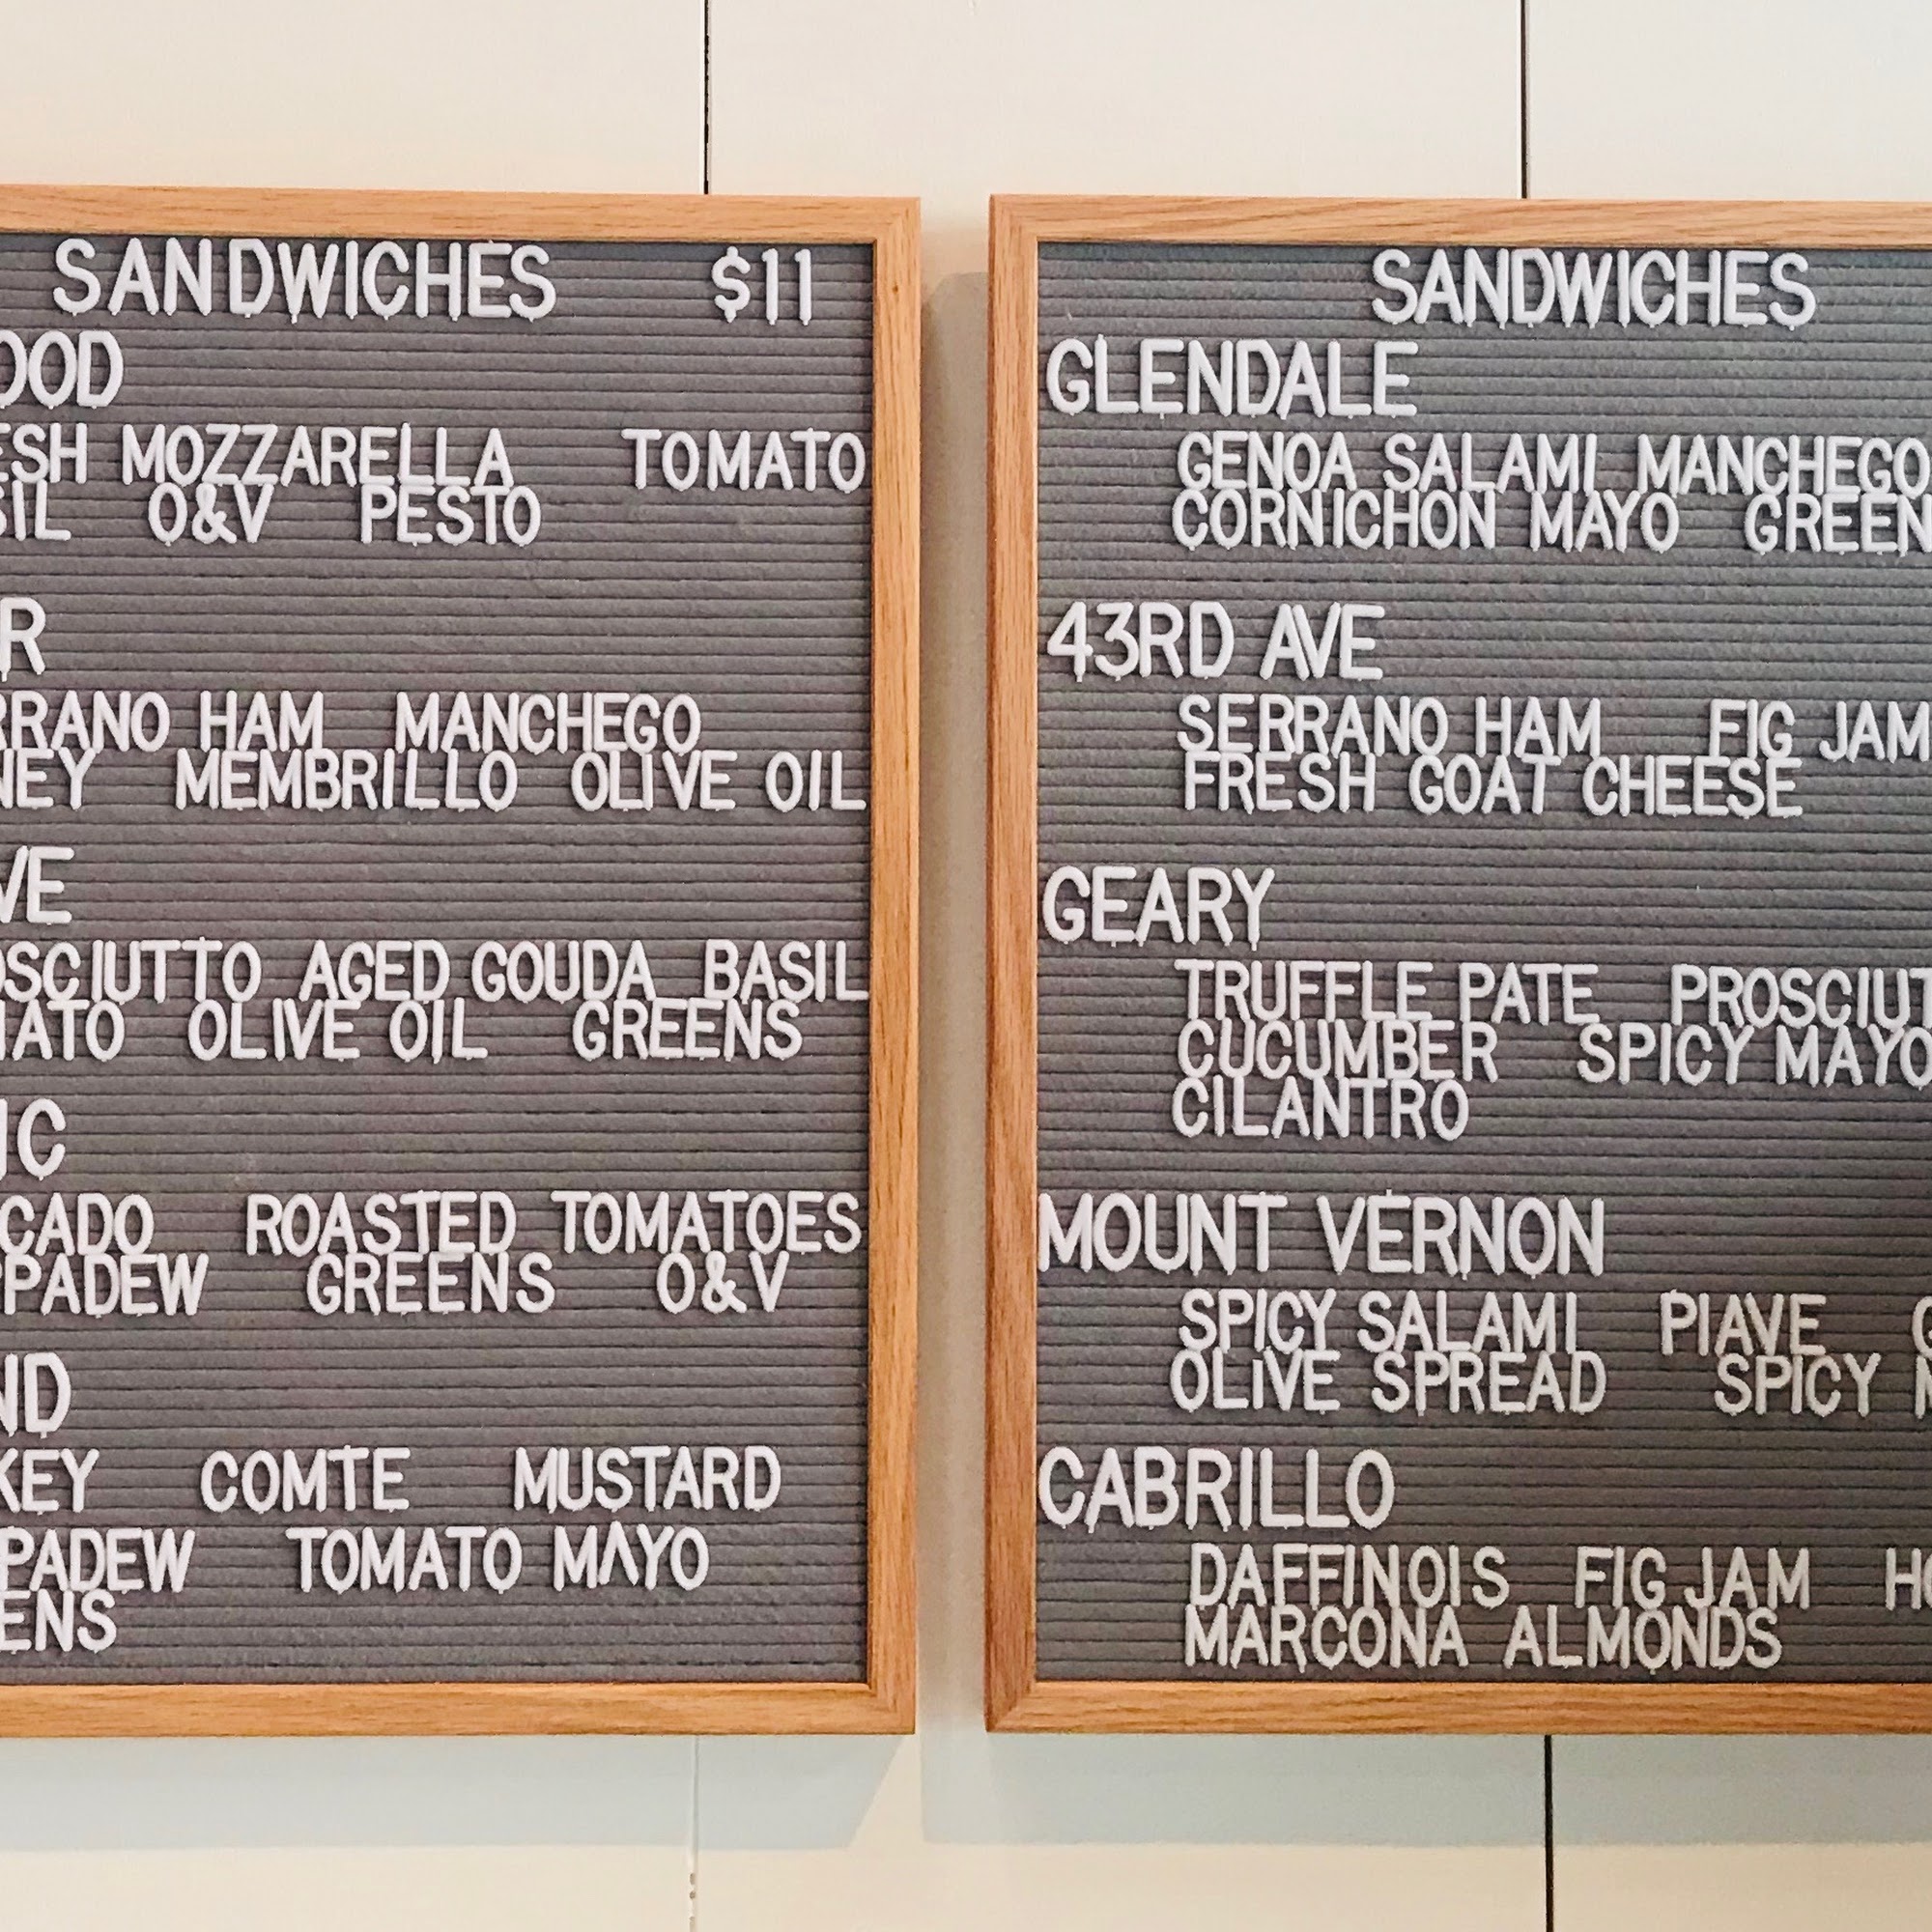 SANDWICHES $11
MOZZARELLA TOMATO
O&V PESTO
HAM MANCHEGO
MEMBRILLO OLIVE OIL
AGED GOUDA BASIL
OLIVE OIL GREENS
ROASTED TOMATOES
GREENS O&V
COMTE MUSTARD
TOMATO MAYO
SANDWICHES
GLENDALE
GENOA SALAMI MANCHEGO
CORNICHON MAYO
43RD AVE
SERRANO HAM FIG JAM
FRESH GOAT CHEESE
GEARY
TRUFFLE PATE
CUCUMBER SPICY MAYO
CILANTRO
MOUNT VERNON
SPICY SALAMI PIAVE
OLIVE SPREAD SPICY
CABRILLO
DAFFINOIS FIG JAM
MARCONA ALMONDS